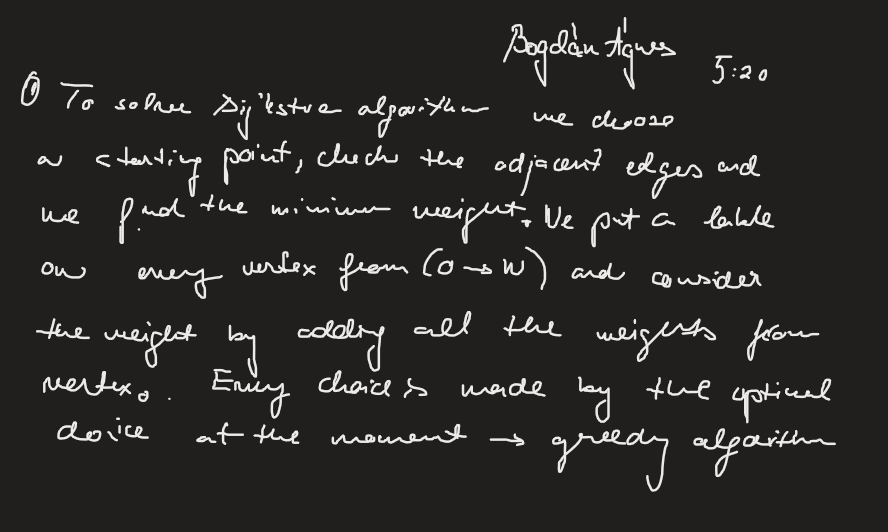 Bogdán Ágnes
5:20
① To solve Dijikstra algorithm we choose
a starting point, check the adjacent edges and
we find the minimum weight. We put a lable
on every vertex from (0→W) and consider
the weight by adding all the weights from
vertex₀. Every choice is made by the optimal
choice at the moment → greedy algorithm